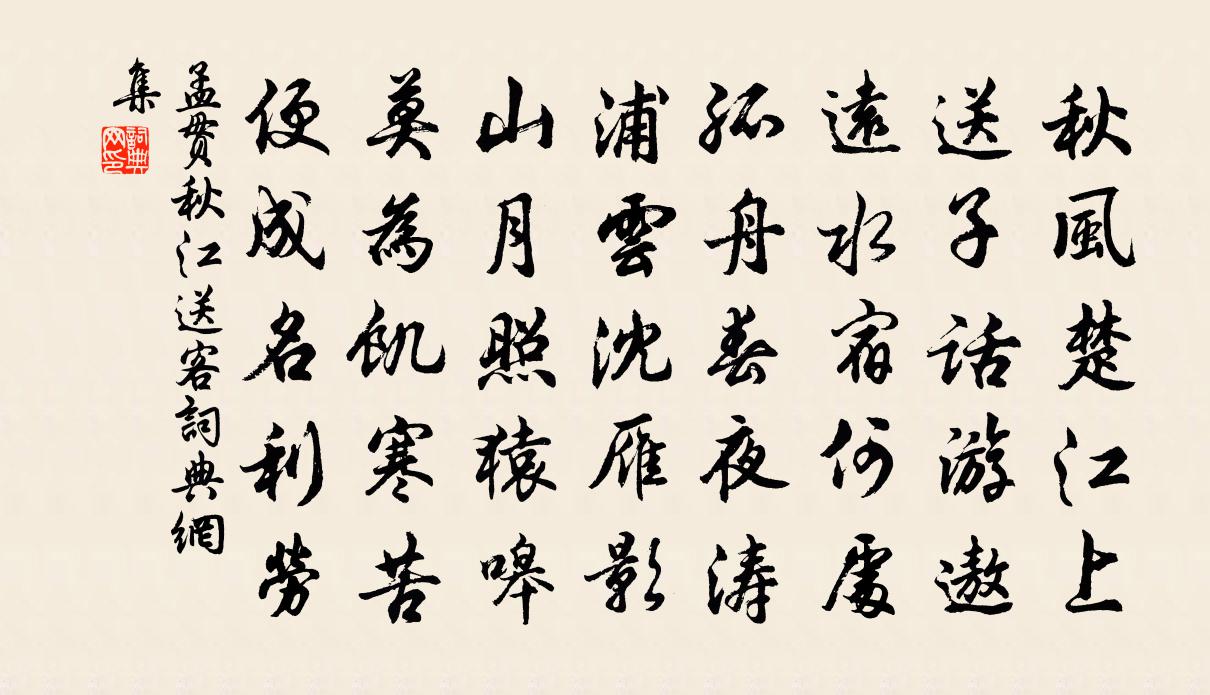 秋風楚江上
送子話游遨
遠水宿何處
孤舟春夜濤
浦雲沈雁影
山月照猿嗥
莫為飢寒苦
便成名利勞
孟貫秋江送客詞典網
集
詞典
网印